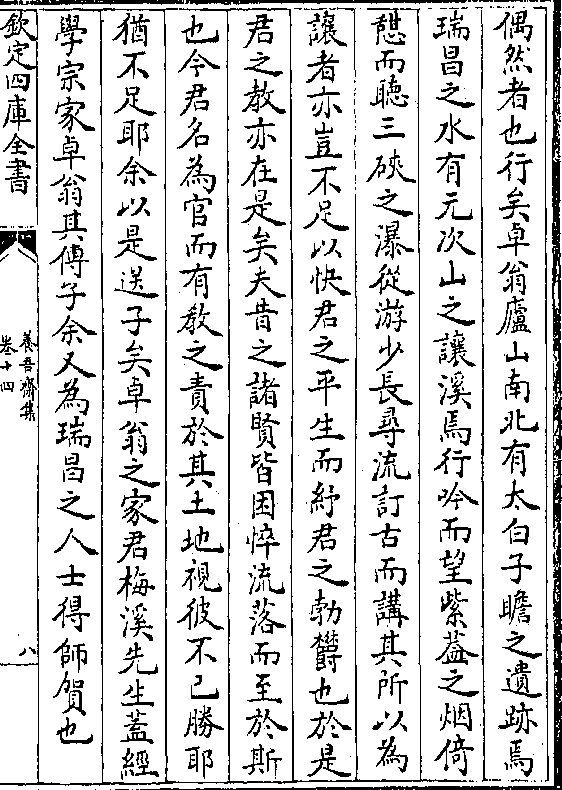 偶然者也行矣卓翁廬山南北有太白子瞻之遺跡焉
瑞昌之水有元次山之讓溪焉行吟而望紫葢之烟倚
憇而聽三硤之瀑從游少長尋流訂古而講其所以為
讓者亦豈不足以快君之平生而紓君之勃欝也於是
君之教亦在是矣夫昔之諸賢皆困悴流落而至於斯
也今君名為官而有教之責於其土地視彼不已勝耶
猶不足耶余以是送子矣卓翁之家君梅溪先生蓋經
學宗家卓翁其傅子余又為瑞昌之人士得師賀也
欽定四庫全書
養吾齋集
卷十四
八